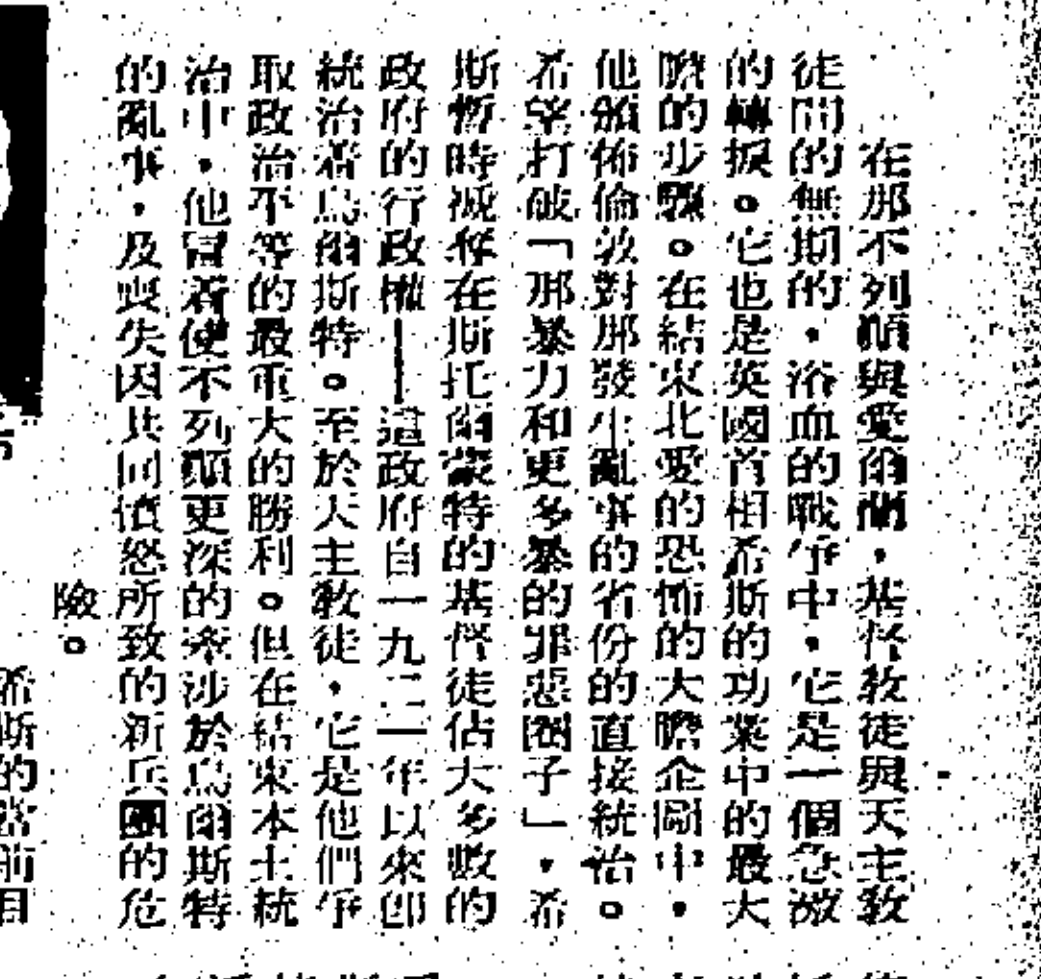 在那不列顛與愛爾蘭，基督教徒與天主教
徒間的無期的，浴血的戰爭中，它是一個急激
的轉捩。它也是英國首相希斯的功業中的最大
膽的步驟。在結束北愛的恐怖的大膽企圖中，
他頒佈倫敦對那發生亂事的省份的直接統治。
希望打破「那暴力和更多暴的罪惡圈子」，希
斯暫時褫奪在斯托爾蒙特的基督徒佔大多數的
政府的行政權——這政府自一九二一年以來卽
統治着烏爾斯特。至於天主教徒，它是他們爭
取政治平等的最重大的勝利。但在結束本土統
治中，他冒着使不列顛更深的牽涉於烏爾斯特
的亂事，及喪失因共同憤怒所致的新兵團的危
險。
希斯的當前目